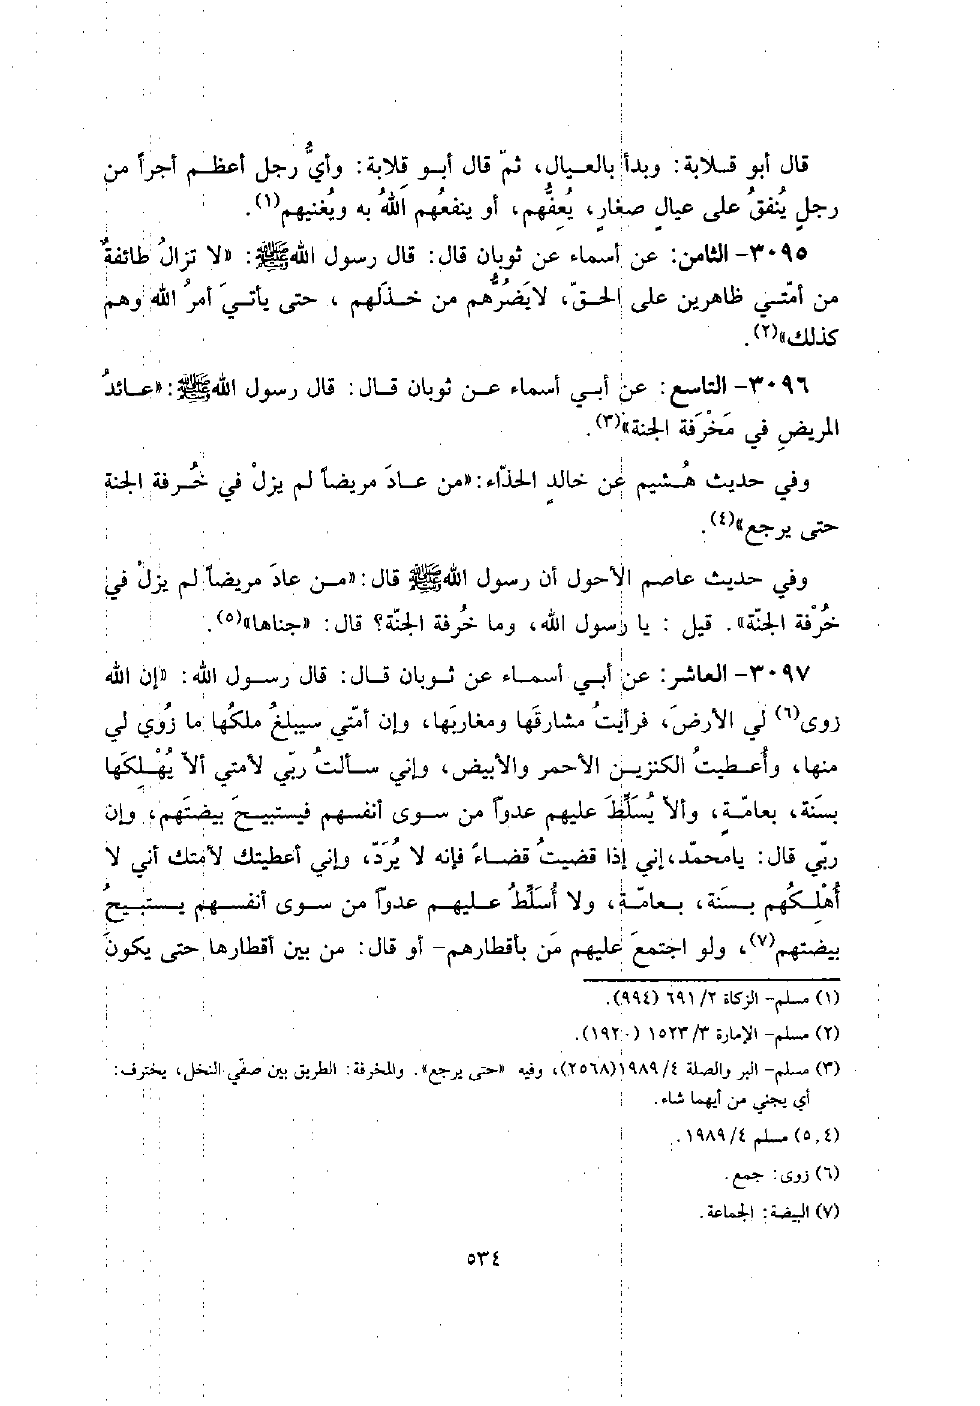 قال أبو قـلابة: وبدأ بالعـيال، ثمّ قال أبـو قِلابة: وأيُّ رجل أعظـم أجراً من
رجلٍ يُنفقُ على عيالٍ صغارٍ، يُعِفُّهم، أو ينفعُهم اللهُ به ويُغنيهم(١).
٣٠٩٥- الثامن: عن أسماء عن ثوبان قال: قال رسول اللهﷺ: «لا تزالُ طائفةٌ
من أمّتـي ظاهرين على الحقّ، لايَضُرُّهم من خـذلهم ، حتى يأتـيَ أمرُ الله وهم
كذلك»(٢).
٣٠٩٦- التاسع: عن أبـي أسماء عـن ثوبان قـال: قال رسول اللهﷺ:«عـائدُ
المريضِ في مَخْرَفة الجنة»(٣).
وفي حديث هُـشيم عن خالدٍ الحذّاء:«من عـادَ مريضاً لم يزلْ في خُـرفة الجنة
حتى يرجع»(٤).
وفي حديث عاصم الأحول أن رسول اللهﷺ قال:«مـن عادَ مريضاً لم يزلْ في
خُرْفة الجنّة». قيل : يا رسول الله، وما خُرفة الجنّة؟ قال: «جناها»(٥).
٣٠٩٧- العاشر: عن أبـي أسمـاء عن ثـوبان قـال: قال رسـول الله: «إن الله
زوى(٦) لي الأرضَ، فرأيتُ مشارقَها ومغاربَها، وإن أمّتي سيبلغُ ملكُها ما زُوي لي
منها، وأُعـطيتُ الكنزيـن الأحمر والأبيض، وإني سـألتُ ربّي لأمتي ألاّ يُهْـلِكَها
بسَنة، بعامّـةٍ، وألاّ يُسَلِّطَ عليهم عدواً من سـوى أنفسهم فيستبيـحَ بيضتَهم، وإن
ربّي قال: يامحمّد،إني إذا قضيتُ قضـاءً فإنه لا يُرَدّ، وإني أعطيتك لأمتك أني لا
أُهْلِكُهم بـسَنة، بـعامّـة، ولا أُسَلِّطُ عليـهم عدواً من سـوى أنفسـهم يسـتبيـحُ
بيضتهم(٧)، ولو اجتمعَ عليهم مَن بأقطارهم- أو قال: من بين أقطارها حتى يكونَ
(١) مسلم- الزكاة ٢/ ٦٩١ (٩٩٤).
(٢) مسلم- الإمارة ٣/ ١٥٢٣ (١٩٢٠).
(٣) مسلم- البر والصلة ٤/ ١٩٨٩(٢٥٦٨)، وفيه «حتى يرجع». والمخرفة: الطريق بين صفّي النخل، يخترف:
أي يجني من أيهما شاء.
(٥,٤) مسلم ٤/ ١٩٨٩.
(٦) زوى: جمع.
(٧) البيضة: الجماعة.
٥٣٤